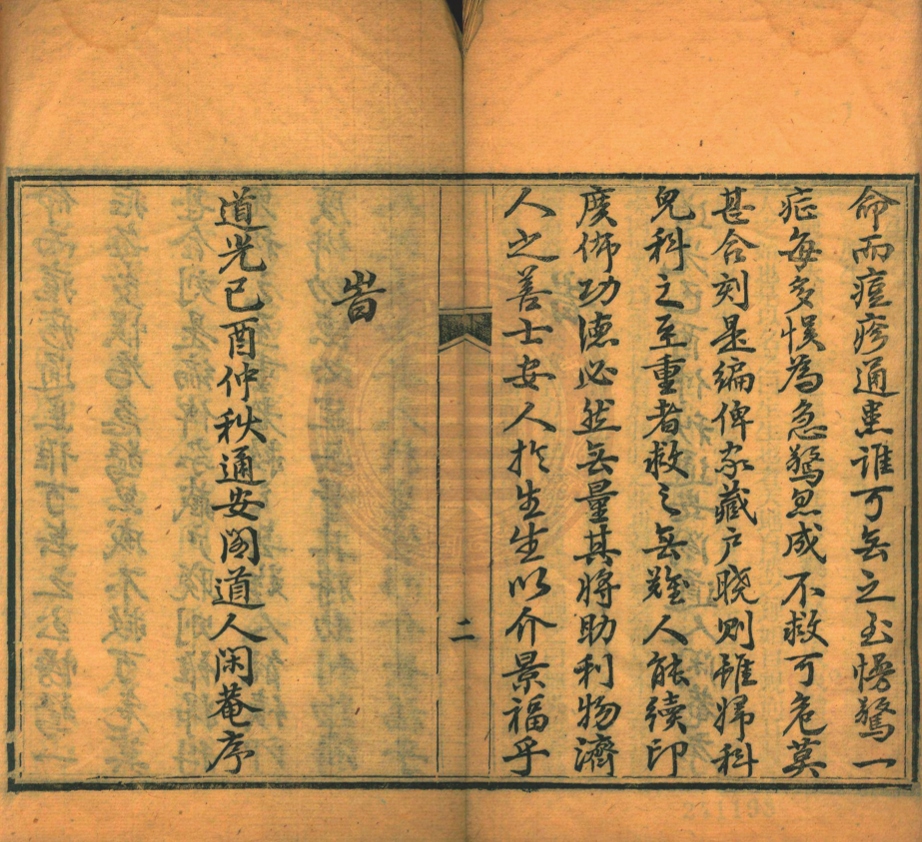 命而痘疹通患谁可无之至慢驚一
症每多悞為急驚忽成不救可危莫
甚合刻是編俾家藏户曉则雖婦科
兒科之至重者救之无難人能續印
廣佈功德必然无量其將助利物濟
人之善士安人扵生生以介景福乎
二
旹
道光己酉仲秋通安阁道人闲菴序